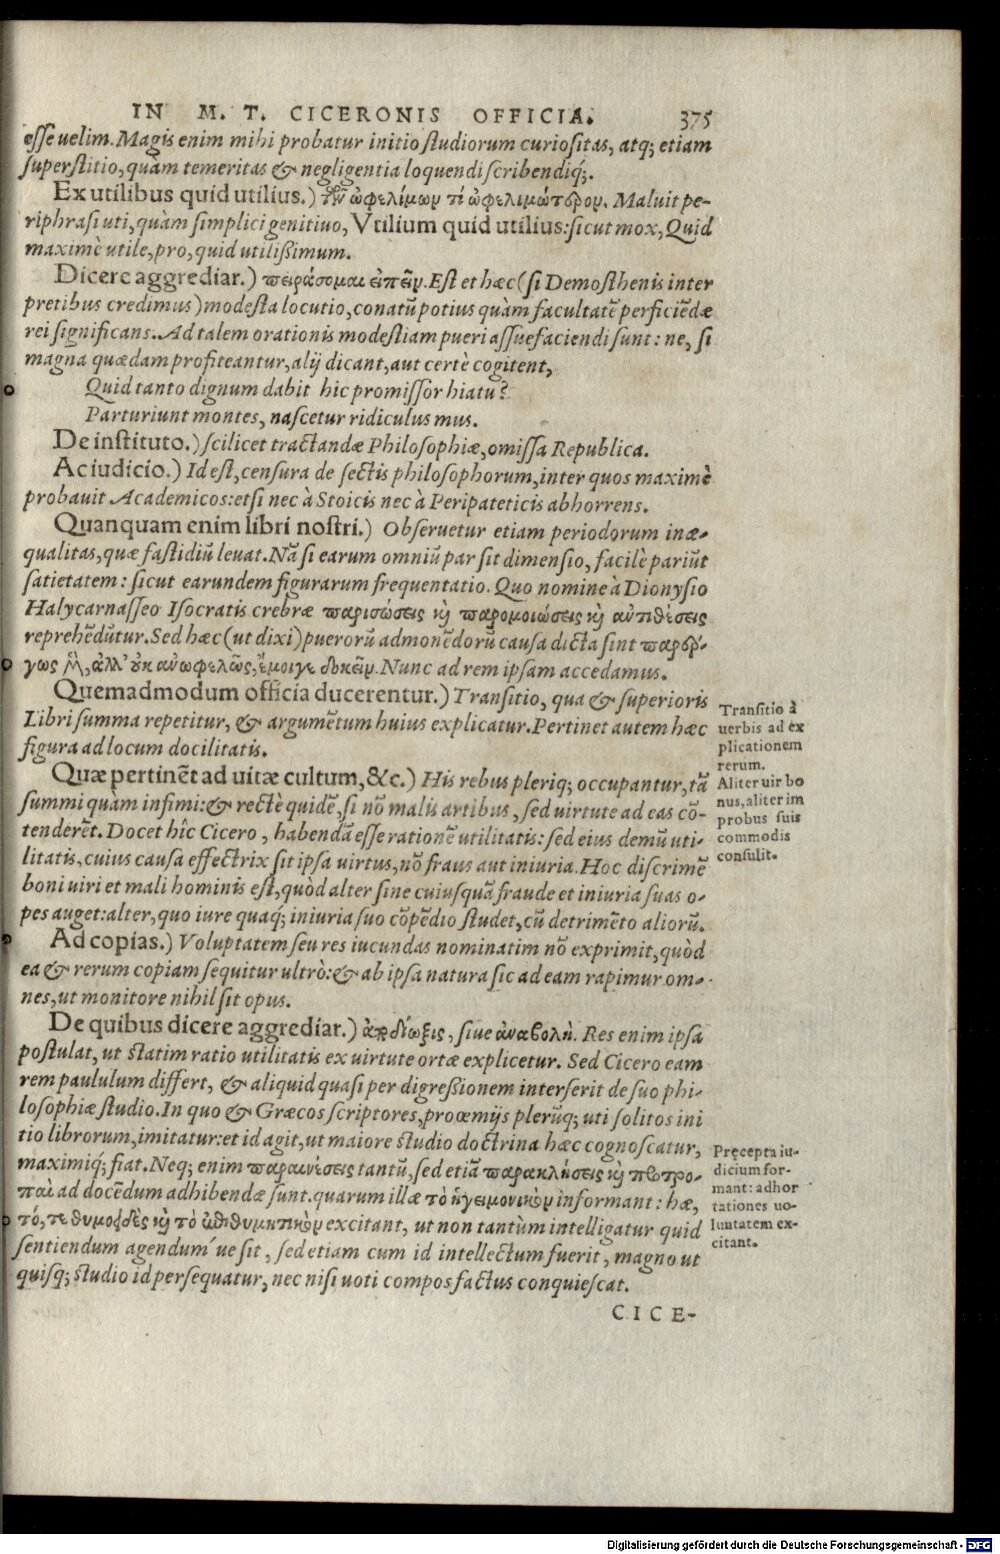 IN M. T. CICERONIS OFFICIA. 375
esse uelim. Magis enim mihi probatur initio studiorum curiositas, atq; etiam
superstitio, quàm temeritas & negligentia loquendi scribendiq́;.
Ex utilibus quid utilius.) τῶν ὠφελίμων τί ὠφελιμώτερον. Maluit pe-
riphrasi uti, quàm simplici genitiuo, Vtilium quid utilius: sicut mox, Quid
maximè utile, pro, quid utilißimum.
Dicere aggrediar.) πειράσομαι εἰπεῖν. Est et hæc (si Demosthenis inter
pretibus credimus) modesta locutio, conatũ potius quàm facultatẽ perficiẽdæ
rei significans. Ad talem orationis modestiam pueri assuefaciendi sunt: ne, si
magna quædam profiteantur, alij dicant, aut certè cogitent,
Quid tanto dignum dabit hic promissor hiatu?
Parturiunt montes, nascetur ridiculus mus.
De instituto.) scilicet tractandæ Philosophiæ, omissa Republica.
Ac iudicio.) Id est, censura de sectis philosophorum, inter quos maximè
probauit Academicos: etsi nec à Stoicis nec à Peripateticis abhorrens.
Quanquam enim libri nostri.) Obseruetur etiam periodorum inæ-
qualitas, quæ fastidiũ leuat. Nã si earum omniũ par sit dimensio, facilè pariũt
satietatem: sicut earundem figurarum frequentatio. Quo nomine à Dionysio
Halycarnasseo Isocratis crebræ παρισώσεις καὶ παρομοιώσεις καὶ ἀντιθέσεις
reprehẽdũtur. Sed hæc (ut dixi) puerorũ admonẽdorũ causa dicta sint παρέρ-
γως μὲν, ἀλλ' οὐκ ἀνωφελῶς, ἔμοιγε δοκεῖν. Nunc ad rem ipsam accedamus.
Quemadmodum officia ducerentur.) Transitio, qua & superioris
Libri summa repetitur, & argumẽtum huius explicatur. Pertinet autem hæc
figura ad locum docilitatis.
Transitio à
uerbis ad ex
plicationem
rerum.
Quæ pertinẽt ad uitæ cultum, &c.) His rebus pleriq; occupantur, tã
summi quàm infimi: & rectè quidẽ, si nõ malis artibus, sed uirtute ad eas cõ-
tenderẽt. Docet hîc Cicero, habendã esse rationẽ utilitatis: sed eius demũ uti-
litatis, cuius causa effectrix sit ipsa uirtus, nõ fraus aut iniuria. Hoc discrimẽ
boni uiri et mali hominis est, quòd alter sine cuiusquã fraude et iniuria suas o-
pes auget: alter, quo iure quaq́; iniuria suo cõpẽdio studet, cũ detrimẽto aliorũ.
Aliter uir bo
nus, aliter im
probus suis
commodis
consulit.
Ad copias.) Voluptatem seu res iucundas nominatim nõ exprimit, quòd
ea & rerum copiam sequitur ultrò: & ab ipsa natura sic ad eam rapimur om-
nes, ut monitore nihil sit opus.
De quibus dicere aggrediar.) ἀποδίωξις, siue ἀναβολὴ. Res enim ipsa
postulat, ut statim ratio utilitatis ex uirtute ortæ explicetur. Sed Cicero eam
rem paululum differt, & aliquid quasi per digreßionem interserit de suo phi-
losophiæ studio. In quo & Græcos scriptores, prooemijs plerũq; uti solitos ini
tio librorum, imitatur: et id agit, ut maiore studio doctrina hæc cognoscatur,
maximiq́; fiat. Neq; enim παραινέσεις tantũ, sed etiã παρακλήσεις καὶ προτρο-
παὶ ad docẽdum adhibendæ sunt. quarum illæ τὸ ἡγεμονικὸν informant: hæ,
τό, τε θυμοειδὲς καὶ τὸ ἐπιθυμητικὸν excitant, ut non tantùm intelligatur quid
sentiendum agendum´ue sit, sed etiam cum id intellectum fuerit, magno ut
quisq; studio id persequatur, nec nisi uoti compos factus conquiescat.
Pręcepta iu-
dicium for-
mant: adhor
tationes uo-
luntatem ex-
citant.
CICE-
Digitalisierung gefördert durch die Deutsche Forschungsgemeinschaft - DFG